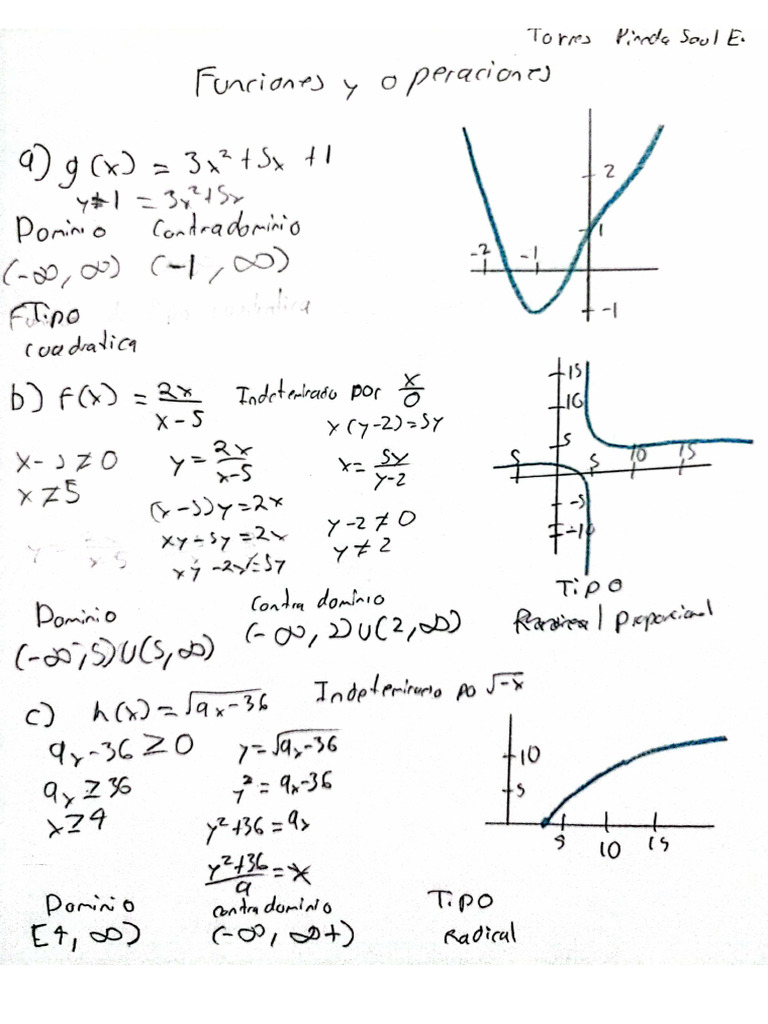 Torres Pineda Saul E.
Funciones y operaciones
a) g(x) = 3x² + 5x + 1
y-1 = 3x²+5x
Dominio Contradominio
(-∞, ∞) (-1, ∞)
Tipo
cuadratica
2
1
-2 -1
-1
b) f(x) = 2x/(x-5) Indeterminado por x/0
x(y-2)=5y
x-5≠0 y = 2x/(x-5) x = 5y/(y-2)
x≠5
(x-5)y=2x
xy-5y=2x y-2≠0
xy-2x=5y y≠2
15
10
5
5 5 10 15
-5
-10
Dominio Contra dominio Tipo
(-∞,5)U(5,∞) (-∞,2)U(2,∞) Proporcional
c) h(x)=√9x-36 Indeterminado po √-x
9x-36≥0 y=√9x-36
9x≥36 y²=9x-36
x≥4 y²+36=9x
(y²+36)/9=x
10
5
5 10 15
Dominio contradominio Tipo
[4, ∞) (-∞, ∞+) Radical